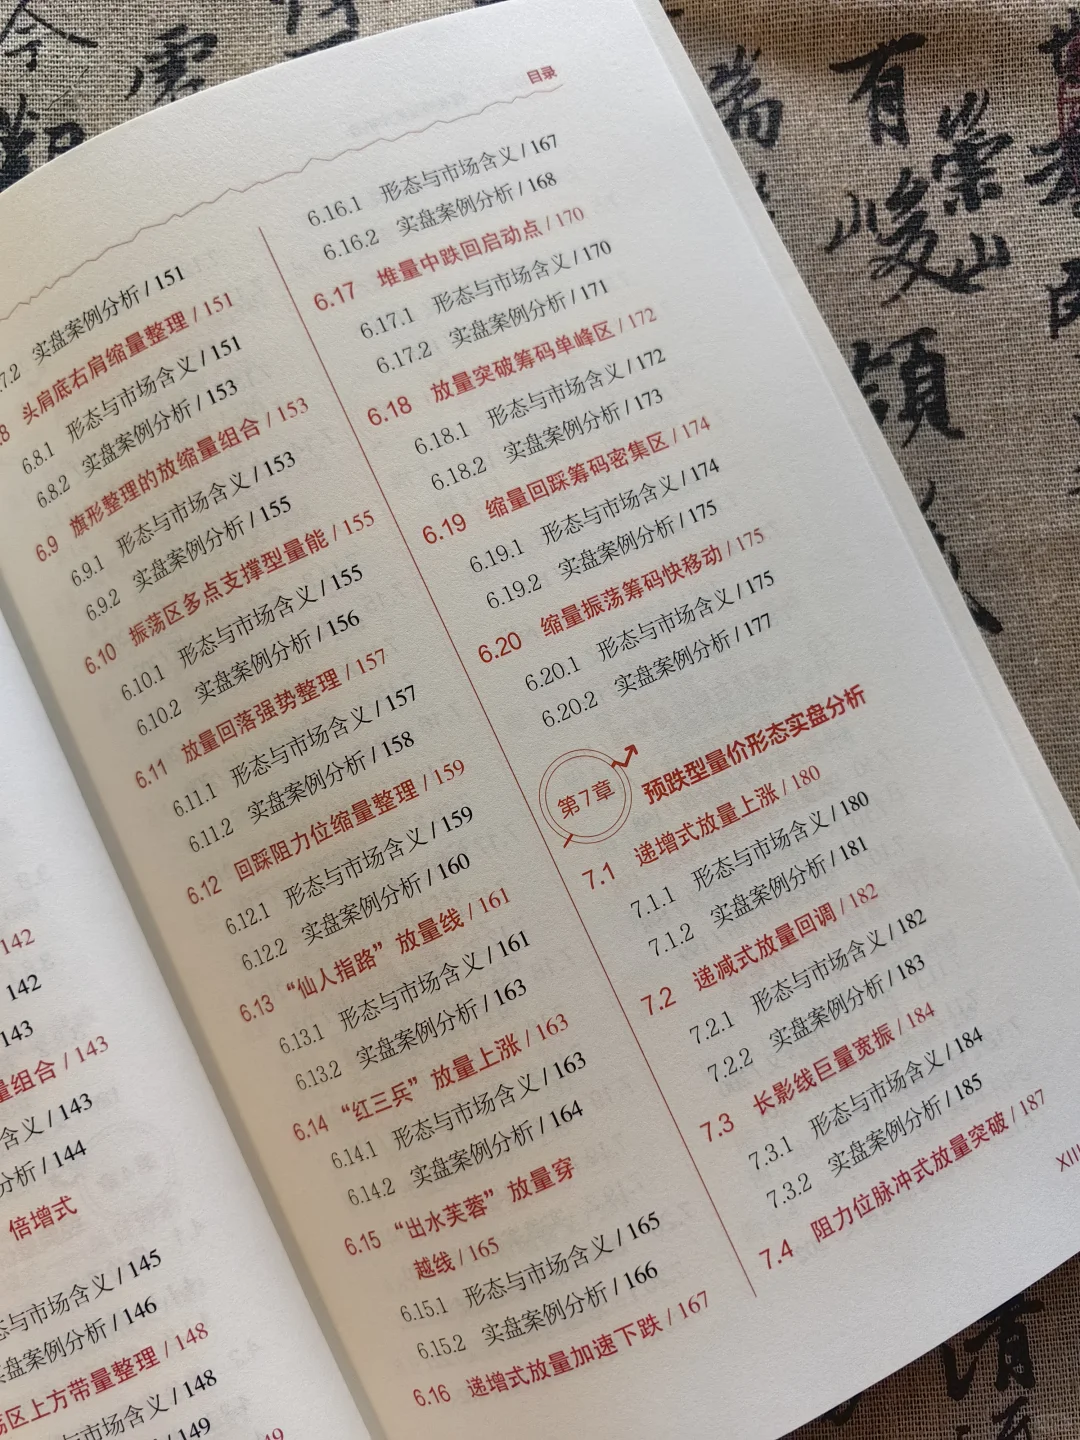 142
142
143
量组合 / 143
含义 / 143
分析 / 144
倍增式
态与市场含义 / 145
盘案例分析 / 146
荡区上方带量整理 / 148
与市场含义 / 148
149
目录
7.2 实盘案例分析 / 151
8 头肩底右肩缩量整理 / 151
6.8.1 形态与市场含义 / 151
6.8.2 实盘案例分析 / 153
6.9 旗形整理的放缩量组合 / 153
6.9.1 形态与市场含义 / 153
6.9.2 实盘案例分析 / 155
6.10 振荡区多点支撑型量能 / 155
6.10.1 形态与市场含义 / 155
6.10.2 实盘案例分析 / 156
6.11 放量回落强势整理 / 157
6.11.1 形态与市场含义 / 157
6.11.2 实盘案例分析 / 158
6.12 回踩阻力位缩量整理 / 159
6.12.1 形态与市场含义 / 159
6.12.2 实盘案例分析 / 160
6.13 “仙人指路”放量线 / 161
6.13.1 形态与市场含义 / 161
6.13.2 实盘案例分析 / 163
6.14 “红三兵”放量上涨 / 163
6.14.1 形态与市场含义 / 163
6.14.2 实盘案例分析 / 164
6.15 “出水芙蓉”放量穿
越线 / 165
6.15.1 形态与市场含义 / 165
6.15.2 实盘案例分析 / 166
6.16 递增式放量加速下跌 / 167
6.16.1 形态与市场含义 / 167
6.16.2 实盘案例分析 / 168
6.17 堆量中跌回启动点 / 170
6.17.1 形态与市场含义 / 170
6.17.2 实盘案例分析 / 171
6.18 放量突破筹码单峰区 / 172
6.18.1 形态与市场含义 / 172
6.18.2 实盘案例分析 / 173
6.19 缩量回踩筹码密集区 / 174
6.19.1 形态与市场含义 / 174
6.19.2 实盘案例分析 / 175
6.20 缩量振荡筹码快移动 / 175
6.20.1 形态与市场含义 / 175
6.20.2 实盘案例分析 / 177
第7章 预跌型量价形态实盘分析
7.1 递增式放量上涨 / 180
7.1.1 形态与市场含义 / 180
7.1.2 实盘案例分析 / 181
7.2 递减式放量回调 / 182
7.2.1 形态与市场含义 / 182
7.2.2 实盘案例分析 / 183
7.3 长影线巨量宽振 / 184
7.3.1 形态与市场含义 / 184
7.3.2 实盘案例分析 / 185
7.4 阻力位脉冲式放量突破 / 187
XIII
有
峻
領